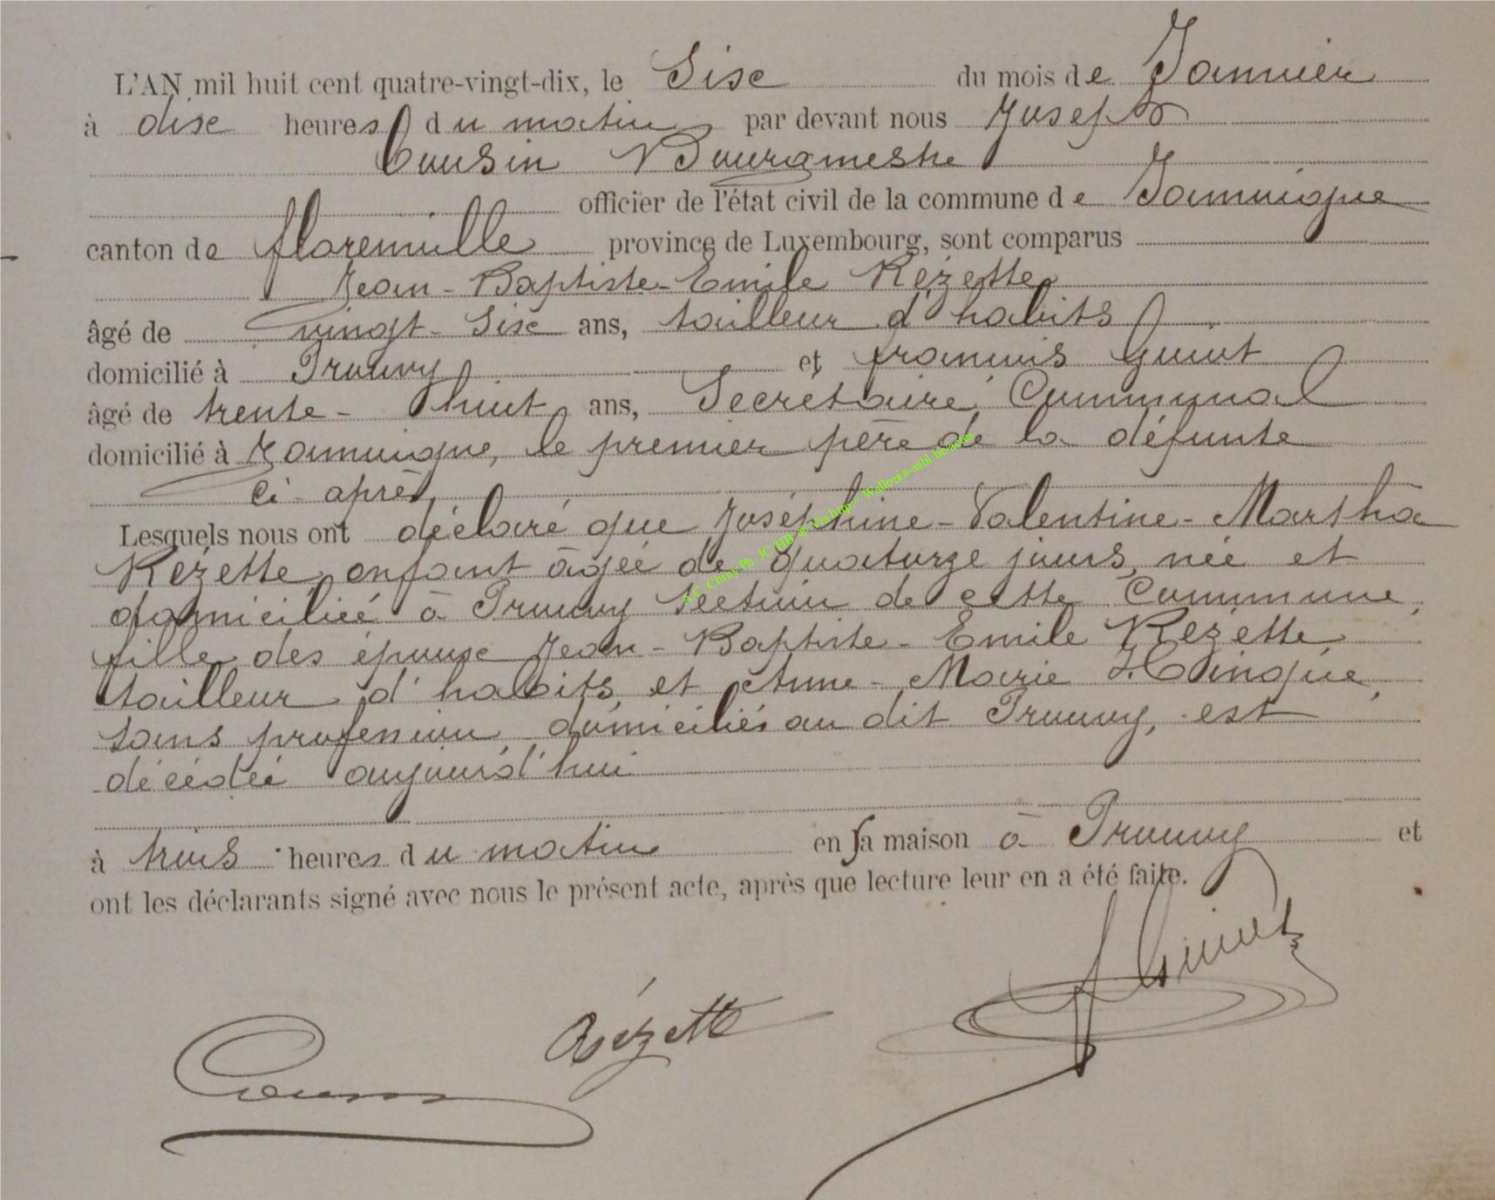 L'AN mil huit cent quatre-vingt-dix, le Six du mois de Janvier
à dix heures du matin par devant nous Joseph
Cousin Bourgmestre
officier de l'état civil de la commune de Jamoigne
canton de florenville province de Luxembourg, sont comparus
Jean-Baptiste-Emile Rézette
âgé de vingt-Six ans, tailleur d'habits
domicilié à Prouvy et françois Guiot
âgé de trente-huit ans, Secrétaire Communal
domicilié à Jamoigne, le premier père de la défunte
ci après,
Lesquels nous ont déclaré que Joséphine-Valentine-Martha
Rézette, enfant âgée de quatorze jours, née et
domiciliée à Prouvy section de cette Commune,
fille des époux Jean-Baptiste-Emile Rézette
tailleur d'habits, et Anne-Marie Hinque,
sans profession, domiciliés au dit Prouvy, est
décédée aujourd'hui
à trois heures du matin en sa maison à Prouvy et
ont les déclarants signé avec nous le présent acte, après que lecture leur en a été faite.
Guiot
Rézette
Cousin